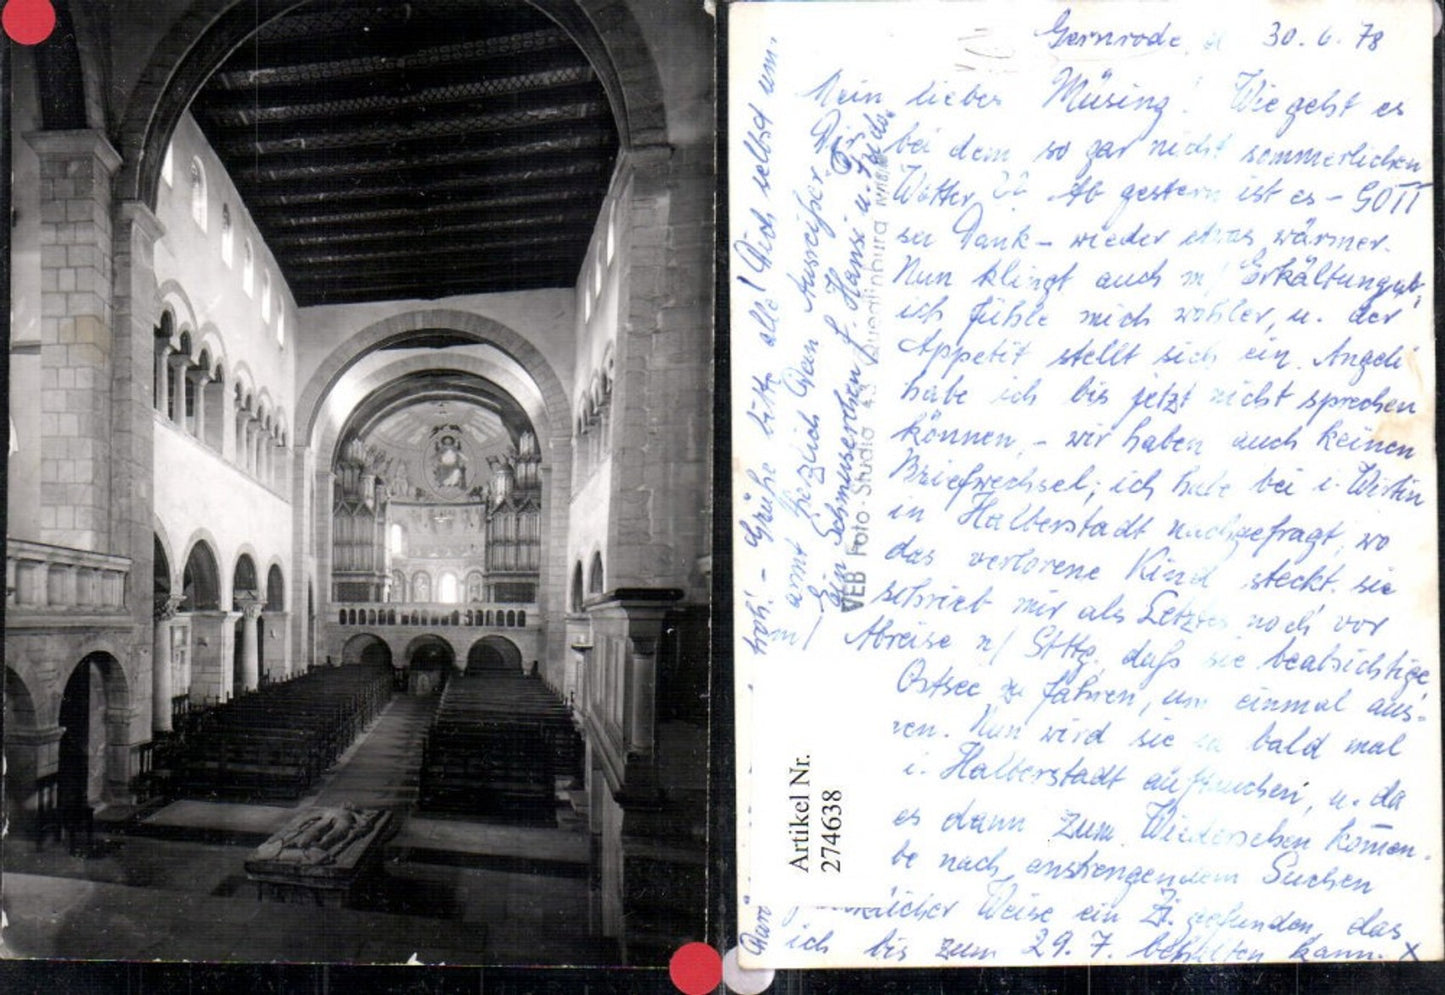 Gernrode, d 30. 6. 78
Mein lieber Müsing! Wie geht es
Dir bei dem so gar nicht sommerlichen
Wetter?? Ab gestern ist es – GOTT
sei Dank – wieder etwas wärmer.
Nun klingt auch m/ Erkältung ab,
ich fühle mich wohler, u. der
Appetit stellt sich ein. Angeli
habe ich bis jetzt nicht sprechen
können, – wir haben auch keinen
Briefwechsel; ich habe bei i. Wirtin
in Halberstadt nachgefragt, wo
das verlorene Kind steckt. sie
schrieb mir als Letztes noch vor
Abreise n/ Sttg. daß sie beabsichtige,
Ostsee zu fahren, um einmal aus-
Nun wird sie ja bald mal
i. Halberstadt auftauchen, u. da
es dann zum Wiedersehen kommen.
be nach anstrengendem Suchen
glücklicher Weise ein Zi. gefunden, das
ich bis zum 29. 7. behalten kann. x
froh! – Grüße bitte alle! Dich selbst um-
armt herzlich Dein Ausreißer
Ein Schmuserchen f. Hansi u.
VEB Foto-Studio 43 Quedlinburg
Artikel Nr.
274638